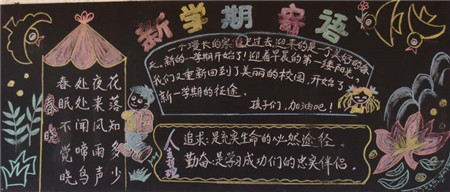 新学期寄语
春晓
春眠不觉晓
处处闻啼鸟
夜来风雨声
花落知多少
一个漫长的寒假已过去,迎来的是一个美好的春
天,新的一学期开始了!迎着早晨的第一缕阳光,
我们又重新回到了美丽的校园,开始了
新一学期的征途。
孩子们,加油吧!
人生
追求:是充实生命的必然途径。
勤奋:是学习成功们的忠实伴侣。